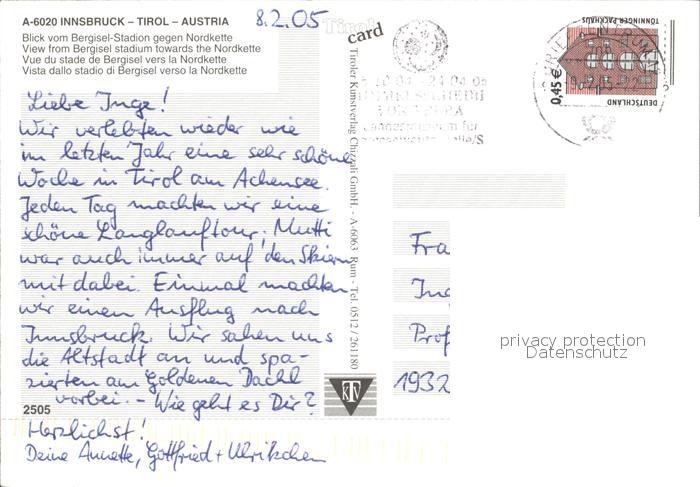 A-6020 INNSBRUCK – TIROL – AUSTRIA
Blick vom Bergisel-Stadion gegen Nordkette
View from Bergisel stadium towards the Nordkette
Vue du stade de Bergisel vers la Nordkette
Vista dallo stadio di Bergisel verso la Nordkette
8.2.05
Tirol
card
Liebe Inge!
Wir verlebten wieder wie
im letzten Jahr eine sehr schöne
Woche in Tirol am Achensee.
Jeden Tag machten wir eine
schöne Langlauftour; Mutti
war auch immer auf den Skiern
mit dabei. Einmal machten
wir einen Ausflug nach
Innsbruck. Wir sahen uns
die Altstadt an und spa-
zierten am Goldenen Dachl
vorbei. - Wie geht es Dir?
Herzlichst!
Deine Annette, Gottfried + Ulrikchen
2505
Tiroler Kunstverlag Chizzali GmbH. - A-6063 Rum - Tel. 0512 / 261180
KTV
TÖNNINGER PACKHAUS
0,45 €
DEUTSCHLAND
Fra
Ing
Prof
1932
privacy protection
Datenschutz